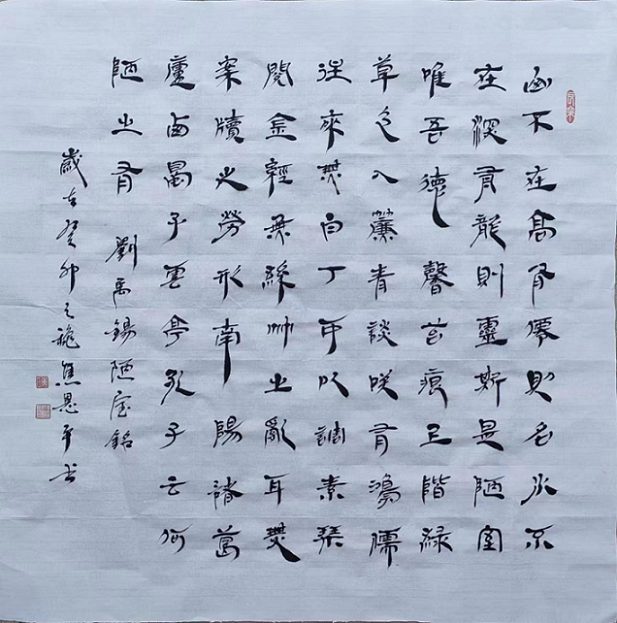 山不在高有僊則名水不
在深有龍則靈斯是陋室
唯吾德馨苔痕上階緑
草色入簾青談咲有鴻儒
往來無白丁可以調素琴
閱金經無絲竹之亂耳無
案牘之勞形南陽諸葛
廬西蜀子雲亭孔子云何
陋之有 劉禹錫陋室銘
歲在癸卯之龝焦恩平书